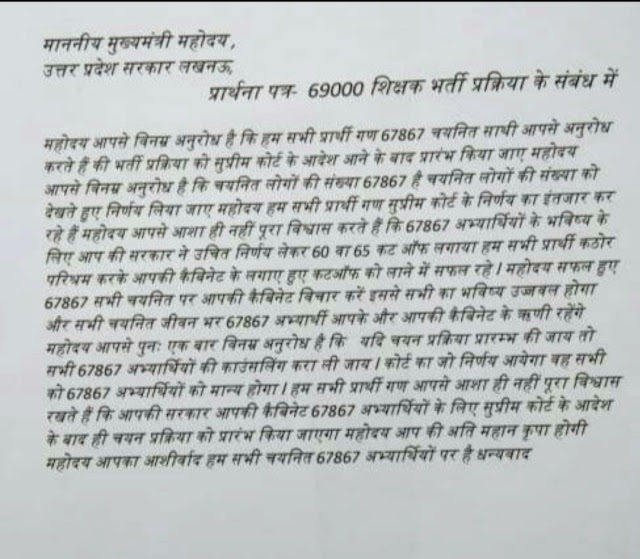 माननीय मुख्यमंत्री महोदय,
उत्तर प्रदेश सरकार लखनऊ
प्रार्थना पत्र- 69000 शिक्षक भर्ती प्रक्रिया के संबंध में
महोदय आपसे विनम्र अनुरोध है कि हम सभी प्रार्थी गण 67867 चयनित साथी आपसे अनुरोध
करते हैं की भर्ती प्रक्रिया को सुप्रीम कोर्ट के आदेश आने के बाद प्रारंभ किया जाए महोदय
आपसे विनम्र अनुरोध है कि चयनित लोगों की संख्या 67867 है चयनित लोगों की संख्या को
देखते हुए निर्णय लिया जाए महोदय हम सभी प्रार्थी गण सुप्रीम कोर्ट के निर्णय का इंतजार कर
रहे हैं महोदय आपसे आशा ही नहीं पूरा विश्वास करते हैं कि 67867 अभ्यार्थियों के भविष्य के
लिए आप की सरकार ने उचित निर्णय लेकर 60 वा 65 कट ऑफ लगाया हम सभी प्रार्थी कठोर
परिश्रम करके आपकी कैबिनेट के लगाए हुए कटऑफ को लाने में सफल रहे । महोदय सफल हुए
67867 सभी चयनित पर आपकी कैबिनेट विचार करें इससे सभी का भविष्य उज्जवल होगा
और सभी चयनित जीवन भर 67867 अभ्यार्थी आपके और आपकी कैबिनेट के ऋणी रहेंगे
महोदय आपसे पुनः एक बार विनम्र अनुरोध है कि यदि चयन प्रक्रिया प्रारम्भ की जाय तो
सभी 67867 अभ्यार्थियों की काउंसलिंग करा ली जाय । कोर्ट का जो निर्णय आयेगा वह सभी
को 67867 अभ्यार्थियों को मान्य होगा । हम सभी प्रार्थी गण आपसे आशा ही नहीं पूरा विश्वास
रखते हैं कि आपकी सरकार आपकी कैबिनेट 67867 अभ्यार्थियों के लिए सुप्रीम कोर्ट के आदेश
के बाद ही चयन प्रक्रिया को प्रारंभ किया जाएगा महोदय आप की अति महान कृपा होगी
महोदय आपका आशीर्वाद हम सभी चयनित 67867 अभ्यार्थियों पर है धन्यवाद